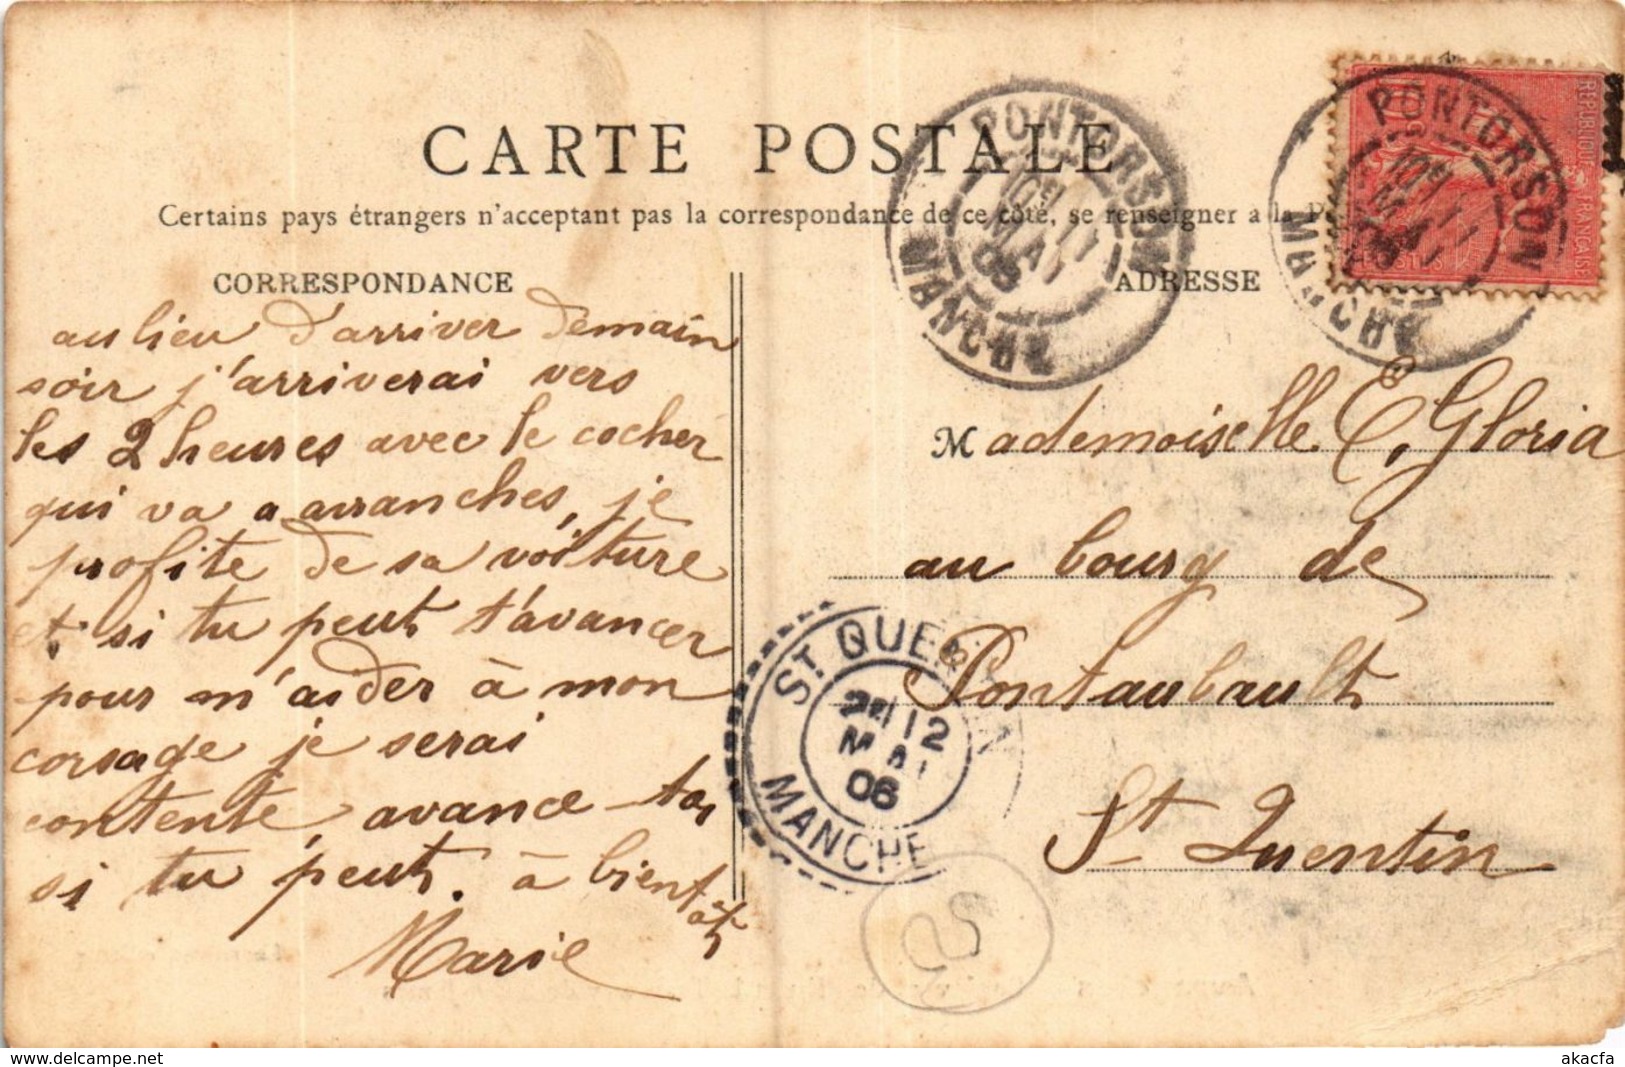 CARTE POSTALE
Certains pays étrangers n'acceptant pas la correspondance de ce côté, se renseigner a la P
CORRESPONDANCE
au lieu d'arriver demain
soir j'arriverai vers
les 2 heures avec le cocher
qui va a avranches, je
profite de sa voiture
et si tu peut t'avancer
pour m'aider à mon
corsage je serai
contente, avance-toi
si tu peut. à bientôt
Marie
ADRESSE
Mademoiselle E. Gloria
au bourg de
Pontaubault
St Quentin
PONTORSON
MANCHE
11
MAI
06
PONTORSON
MANCHE
RÉPUBLIQUE FRANÇAISE
POSTES
ST QUENTIN
12
MAI
06
MANCHE
www.delcampe.net
akacfa